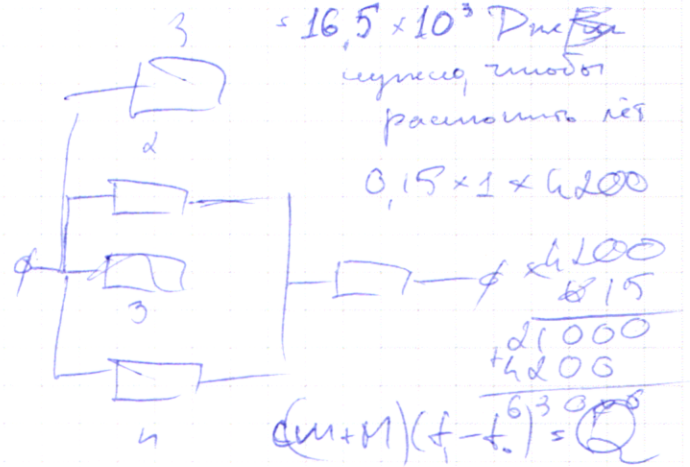 = 16,5 × 10³ Дж
нужно, чтобы
растопить лёт
0,15 × 1 × 4200
3
2
3
4
× 4200
0 15
21000
+4200
63000
c(m+M)(t₁-t₀) = Q